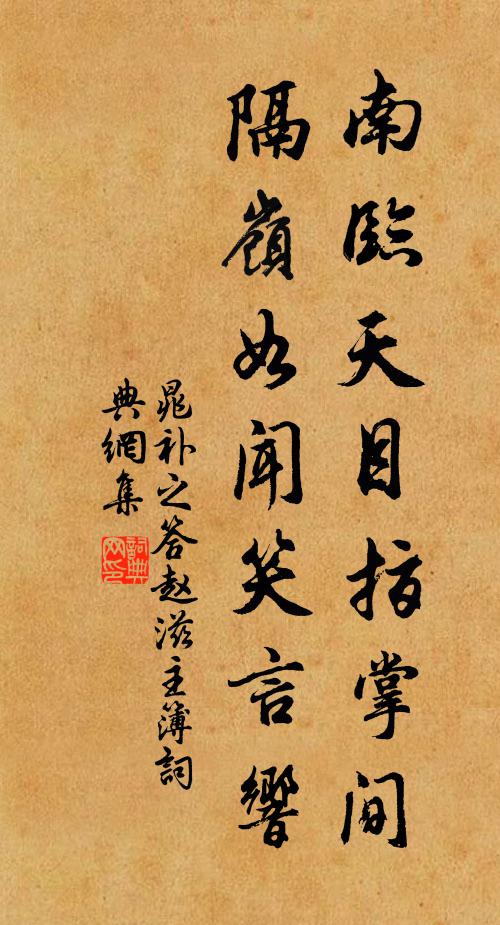 南臨天目指掌間
隔嶺如聞笑言響
晁补之答赵滋主簿詞
典網集
詞典
网印